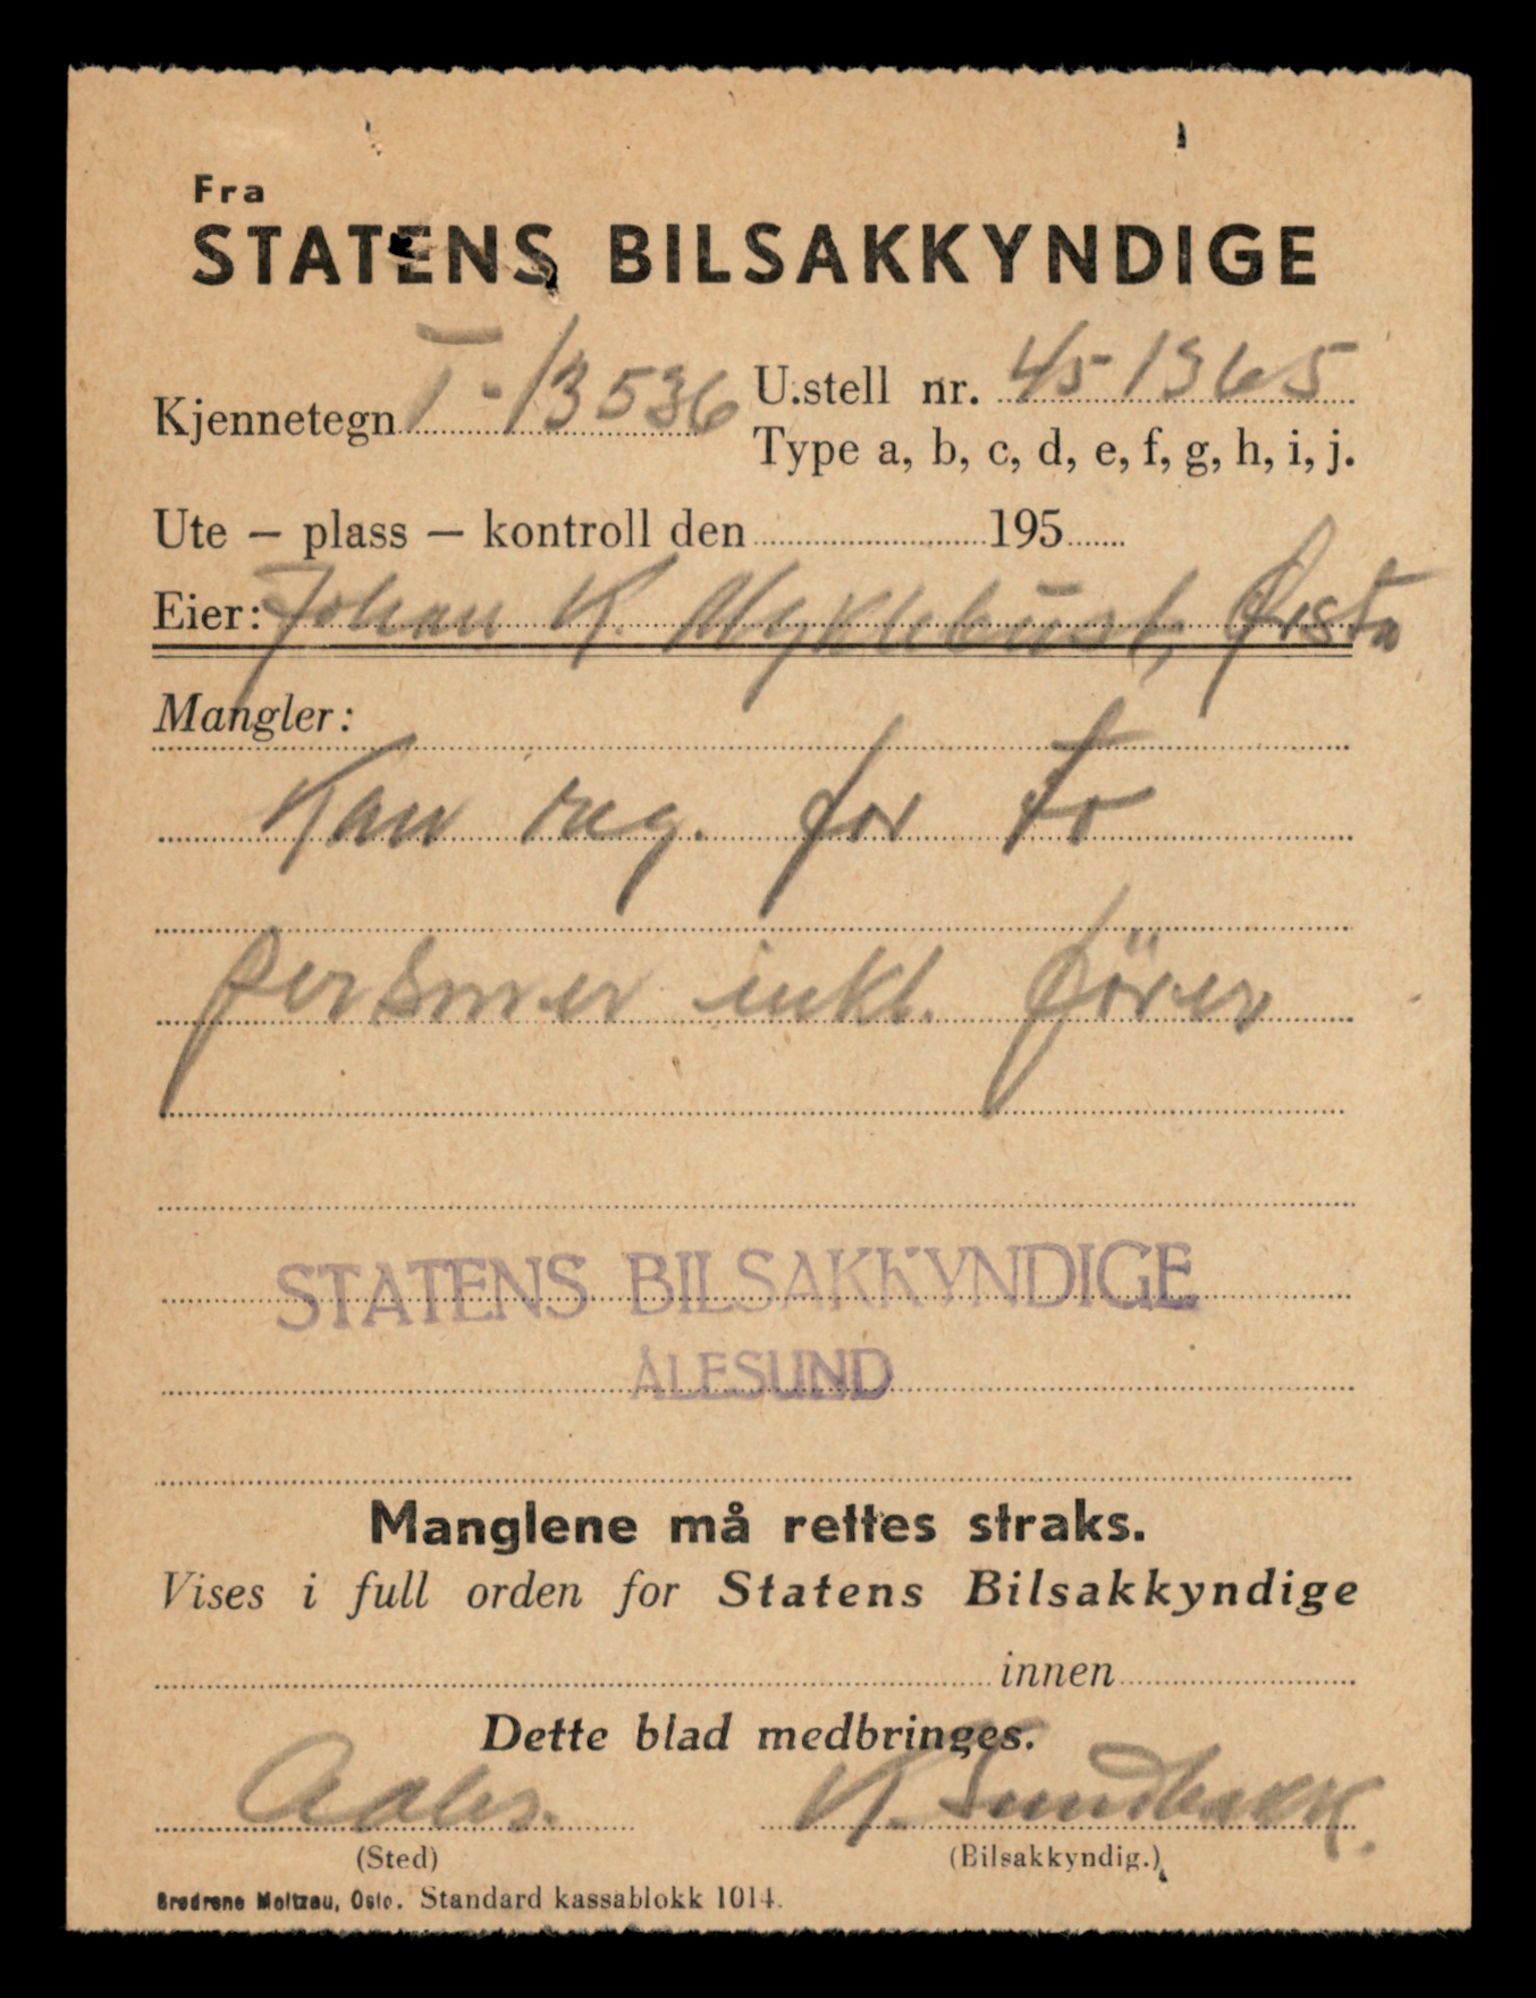 Fra
STATENS BILSAKKYNDIGE
Kjennetegn T-13536 U.stell nr. 45-1365
Type a, b, c, d, e, f, g, h, i, j.
Ute – plass – kontroll den 195
Eier: Johan K. Myklebust, Ørsta
Mangler:
Kan reg. for to
personer inkl. förer
STATENS BILSAKKYNDIGE
ÅLESUND
Manglene må rettes straks.
Vises i full orden for Statens Bilsakkyndige
innen
Dette blad medbringes.
Aales. K. Sundbakk.
(Sted) (Bilsakkyndig.)
Brødrene Moltzau, Oslo. Standard kassablokk 1014.